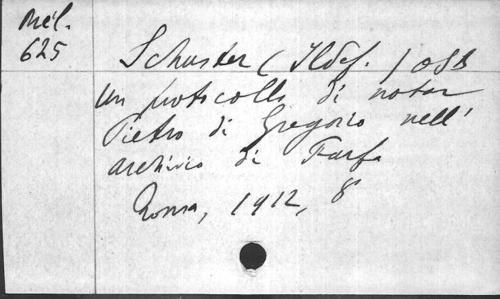 Mél.
625
Schuster (Ildef.) OSB
un protocollo di notar
Pietro di Gregorio nell'
archivio di Farfa
Roma, 1912, 8°